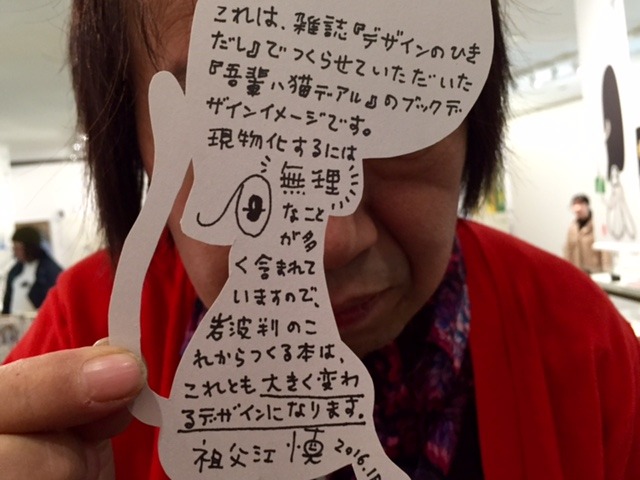 これは、雑誌『デザインのひき
だし』でつくらせていただいた
『吾輩ハ猫デアル』のブックデ
ザインイメージです。
現物化するには
無理
なこと
が多
く含まれて
いますので、
岩波判のこ
れからつくる本は、
これとも大きく変わ
るデザインになります。
祖父江 慎 2016.1